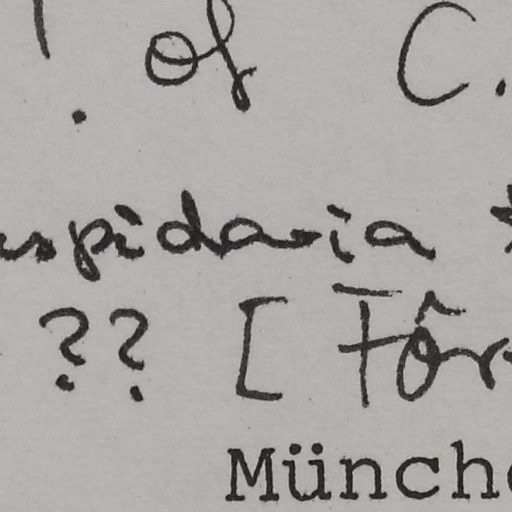 ! of C.
uspidaria
?? [ Fôr
Münche